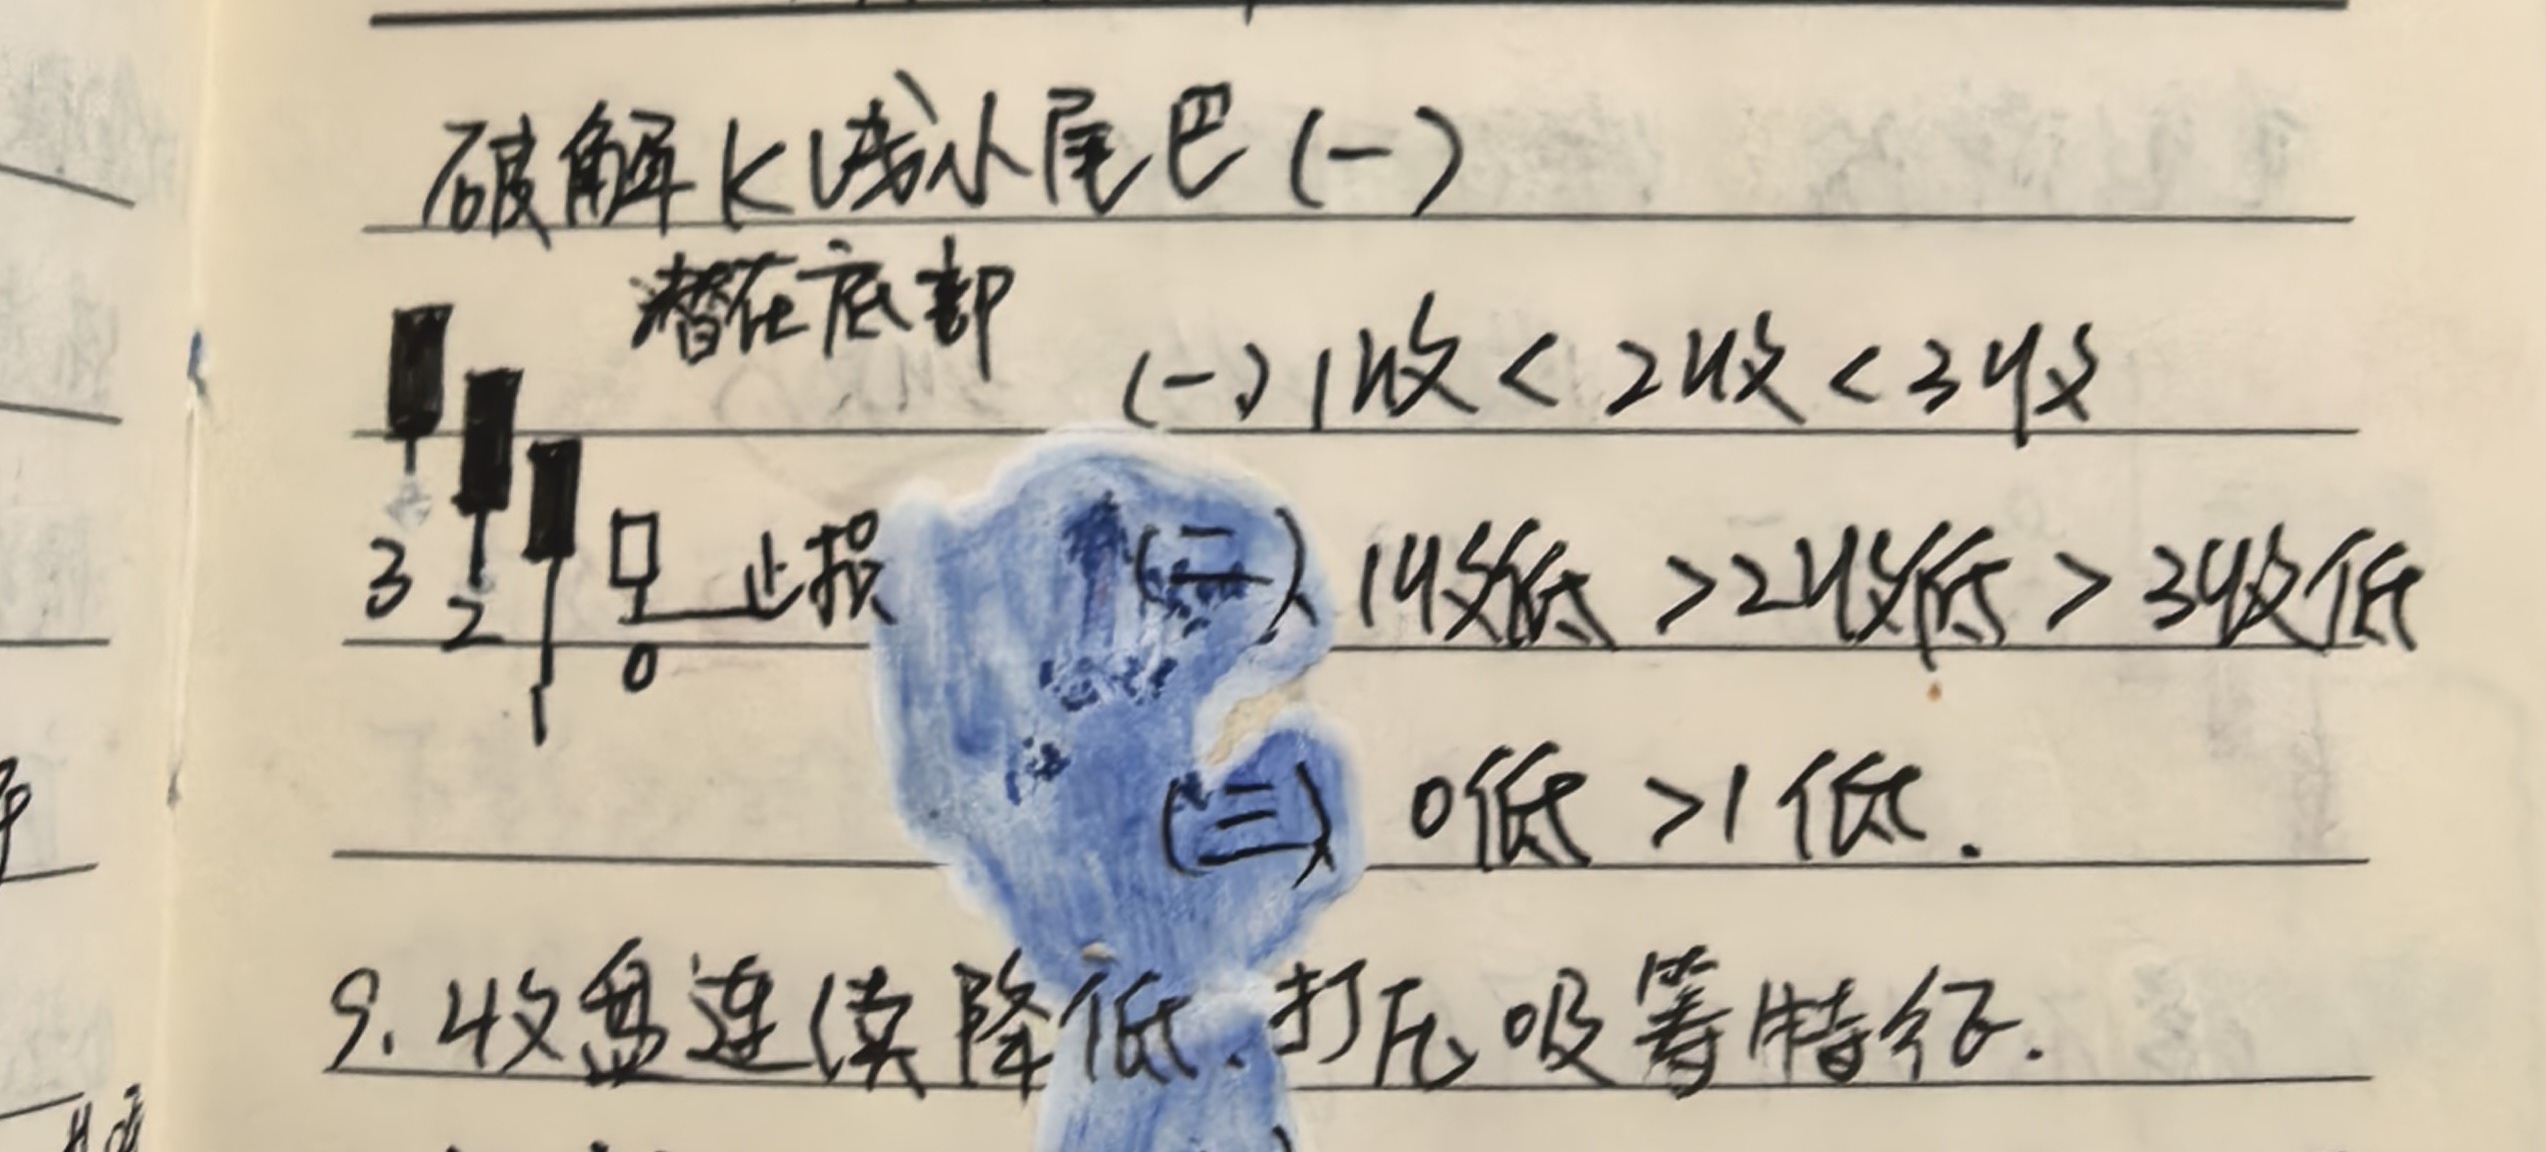 破解K线小尾巴(一)
潜在底部
(一)1收<2收<3收
3 2 1 0 止损
(二)1收低>2收低>3收低
(三)0低>1低.
9.收盘连续降低.打压吸筹特征.